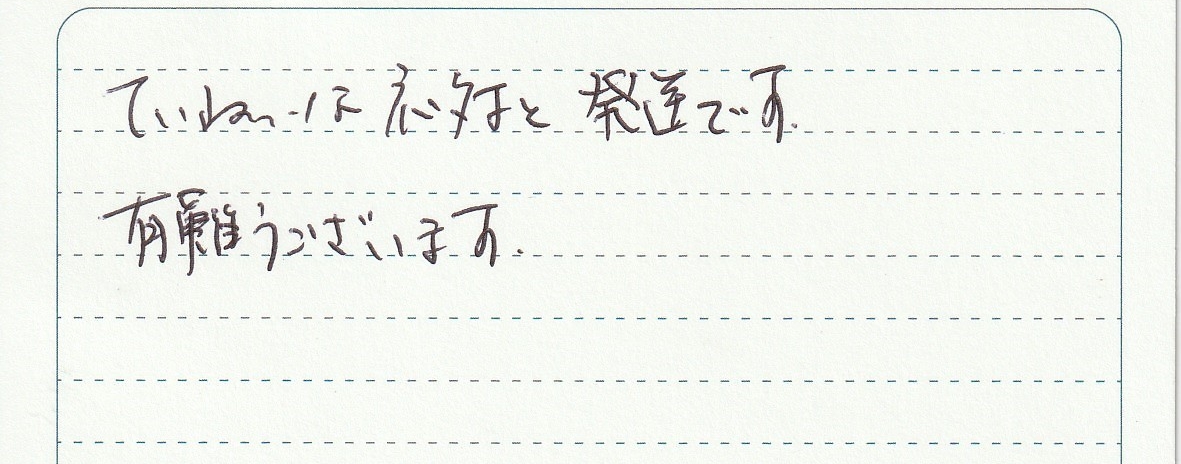 ていねいな応対と発送です.
有難うございます.